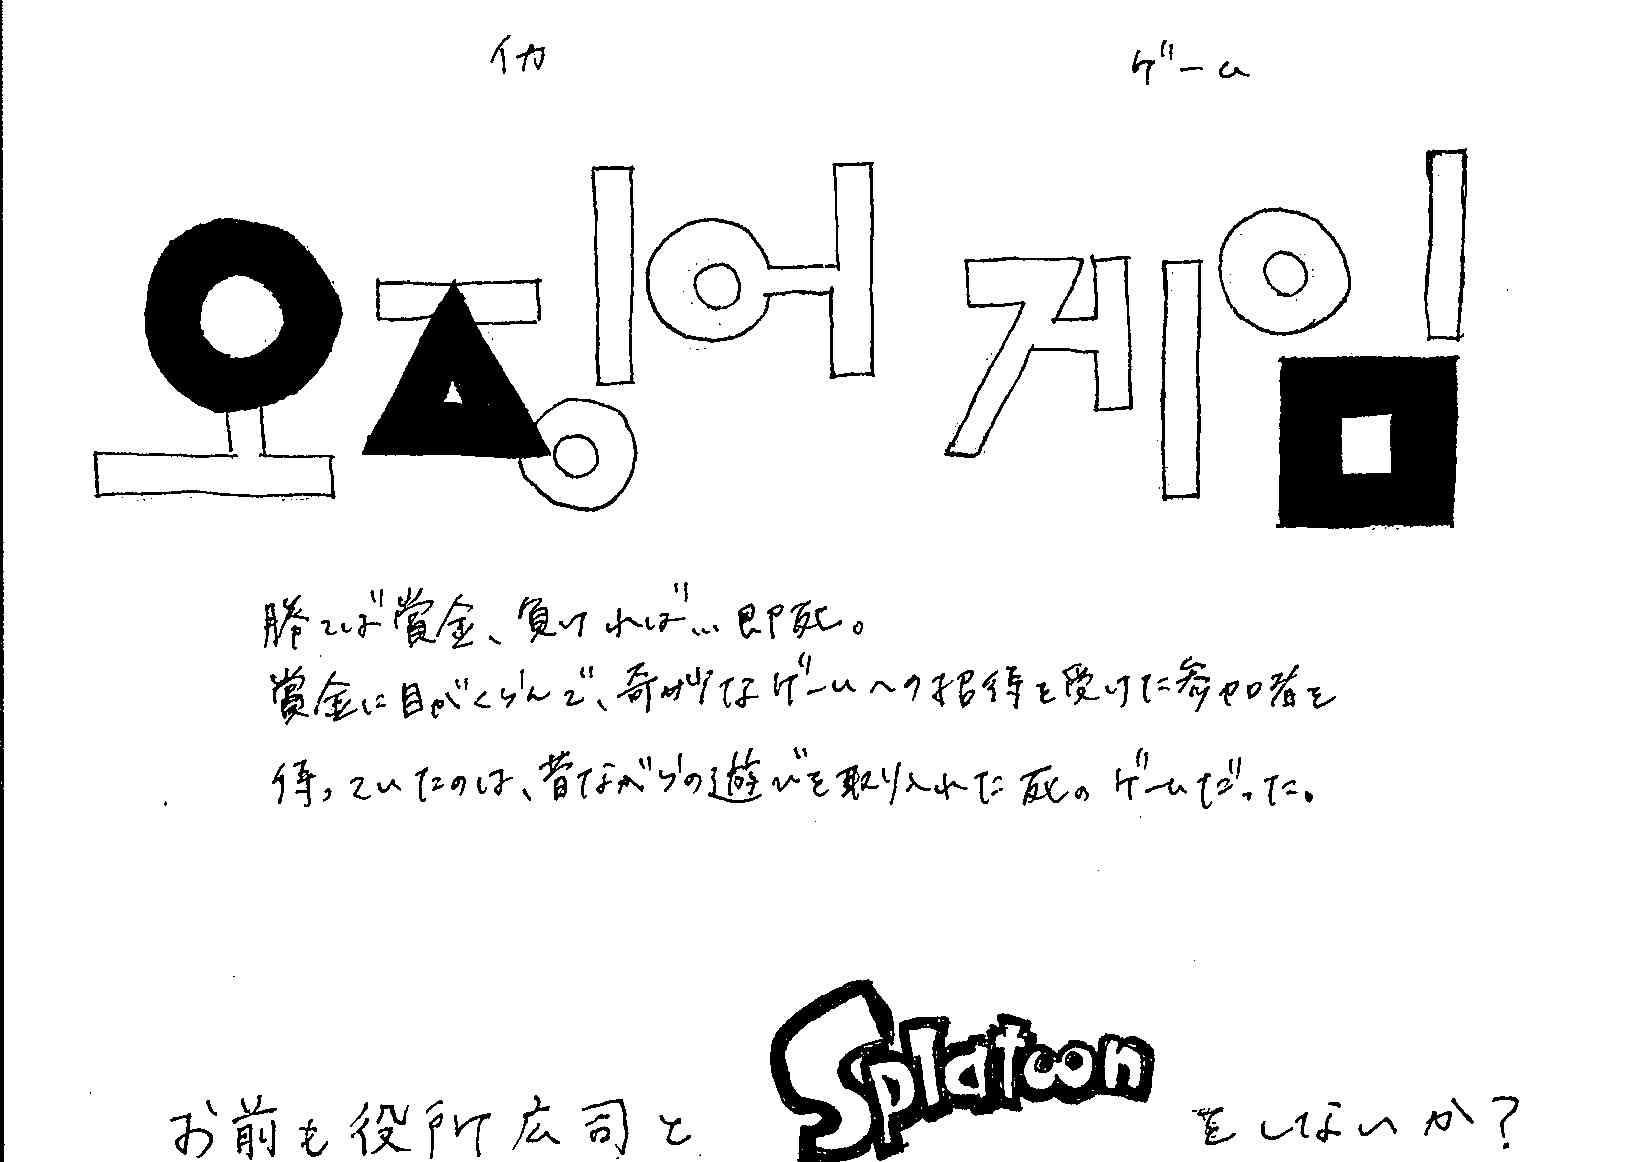 イカ ゲーム
오징어 게임
勝てば賞金、負ければ…即死。
賞金に目がくらんで、奇妙なゲームへの招待を受けた参加者を
待っていたのは、昔ながらの遊びを取り入れた死のゲームだった。
お前も役所広司と Splatoon をしないか?